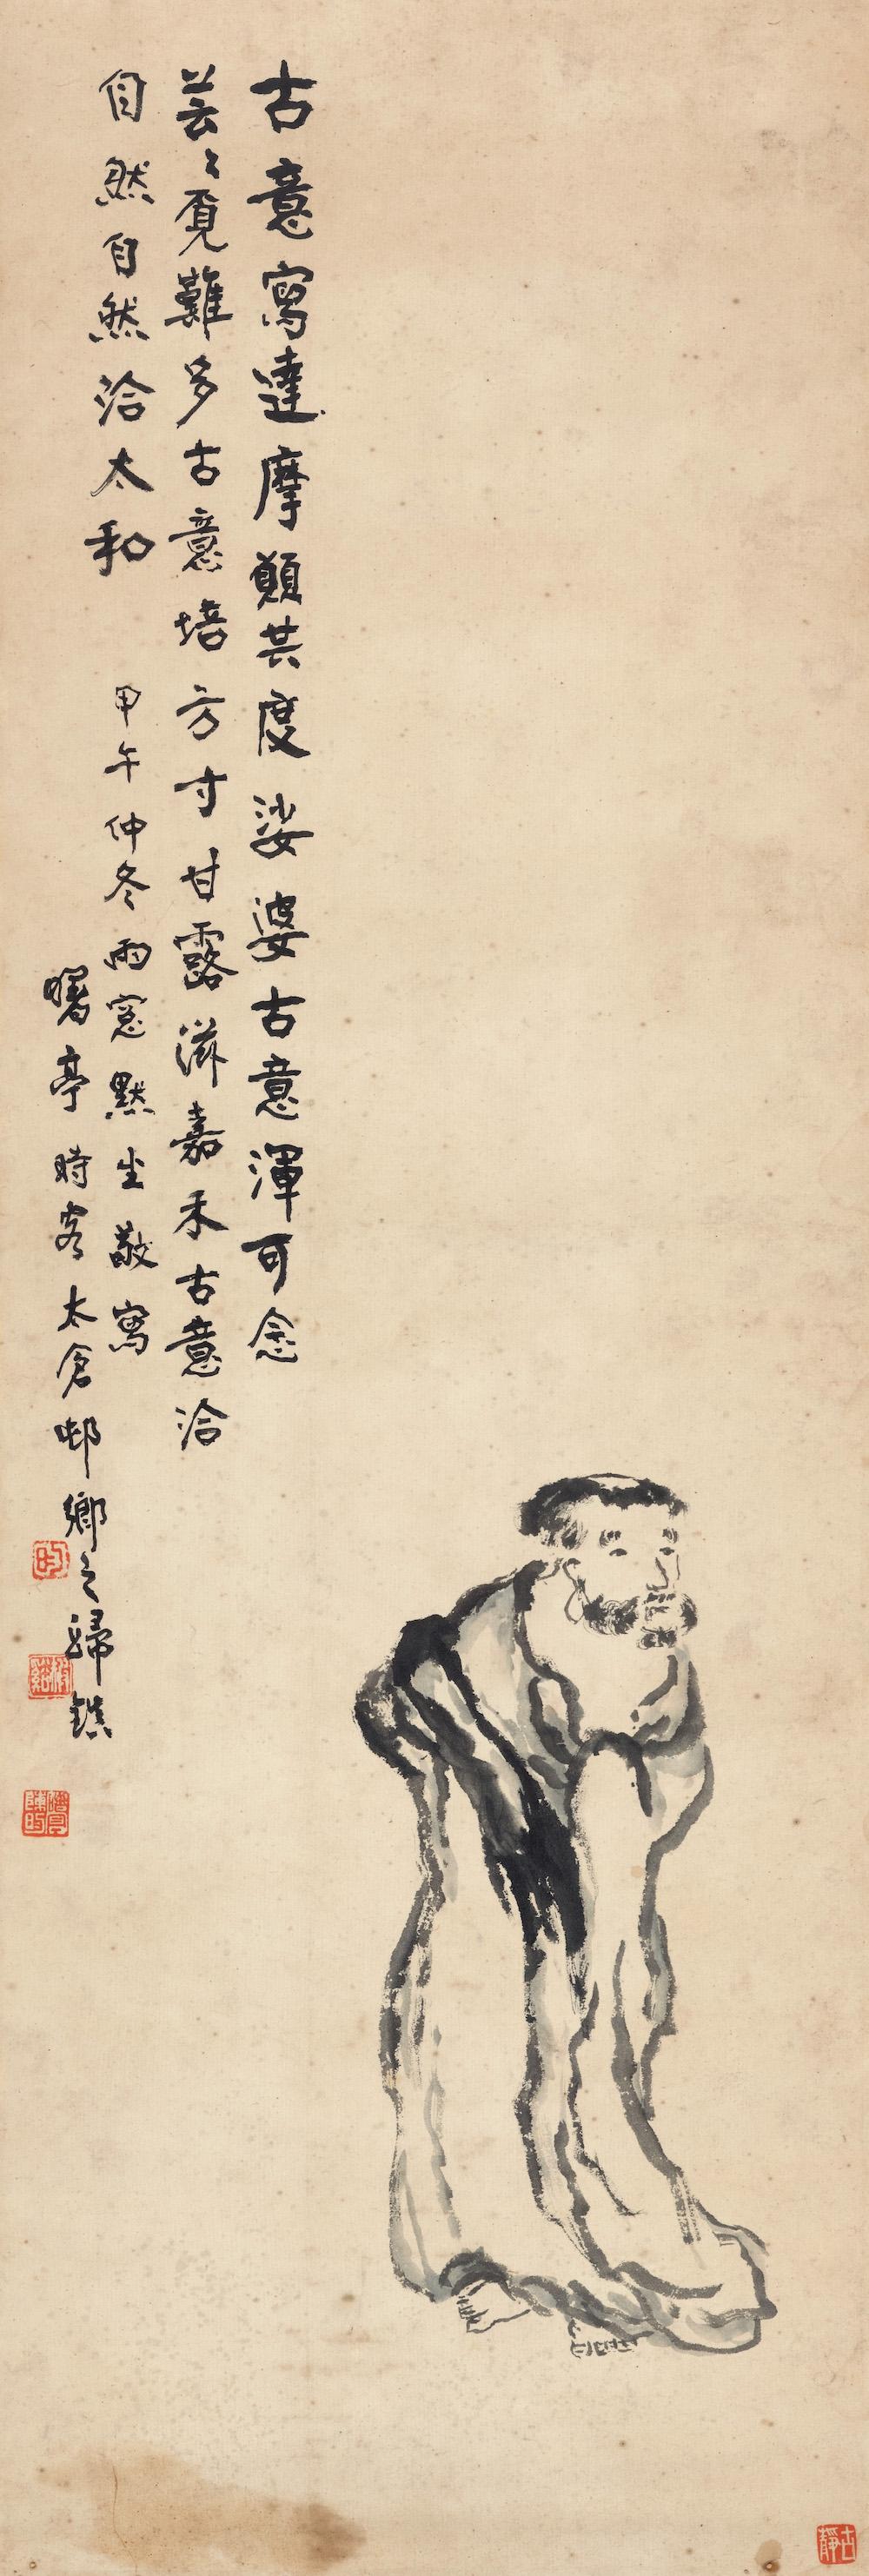 古意寫達摩願共度娑婆古意渾可念
芸〻覓難多古意培方寸甘露滋嘉禾古意洽
自然自然洽太和
甲午仲冬雨窓默坐敬寫
曙亭時客太倉邨鄉之歸鎮
昀
曙亭
陳昀
古靜